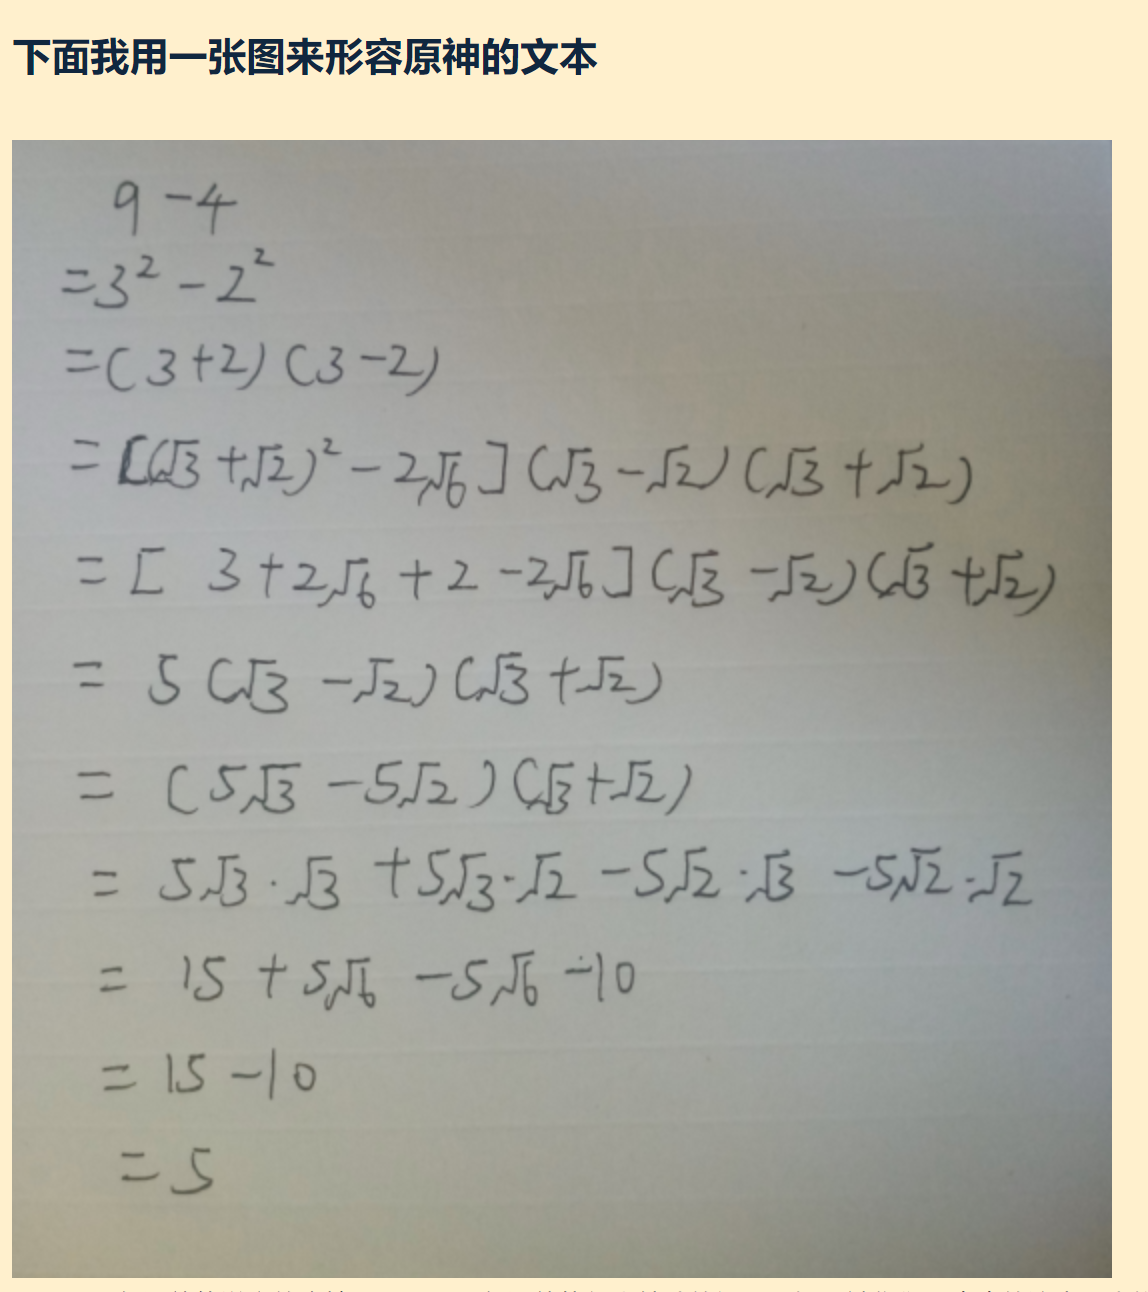 下面我用一张图来形容原神的文本
9-4
=3²-2²
=(3+2)(3-2)
=[(√3+√2)²-2√6](√3-√2)(√3+√2)
=[3+2√6+2-2√6](√3-√2)(√3+√2)
=5(√3-√2)(√3+√2)
=(5√3-5√2)(√3+√2)
=5√3·√3+5√3·√2-5√2·√3-5√2·√2
=15+5√6-5√6-10
=15-10
=5